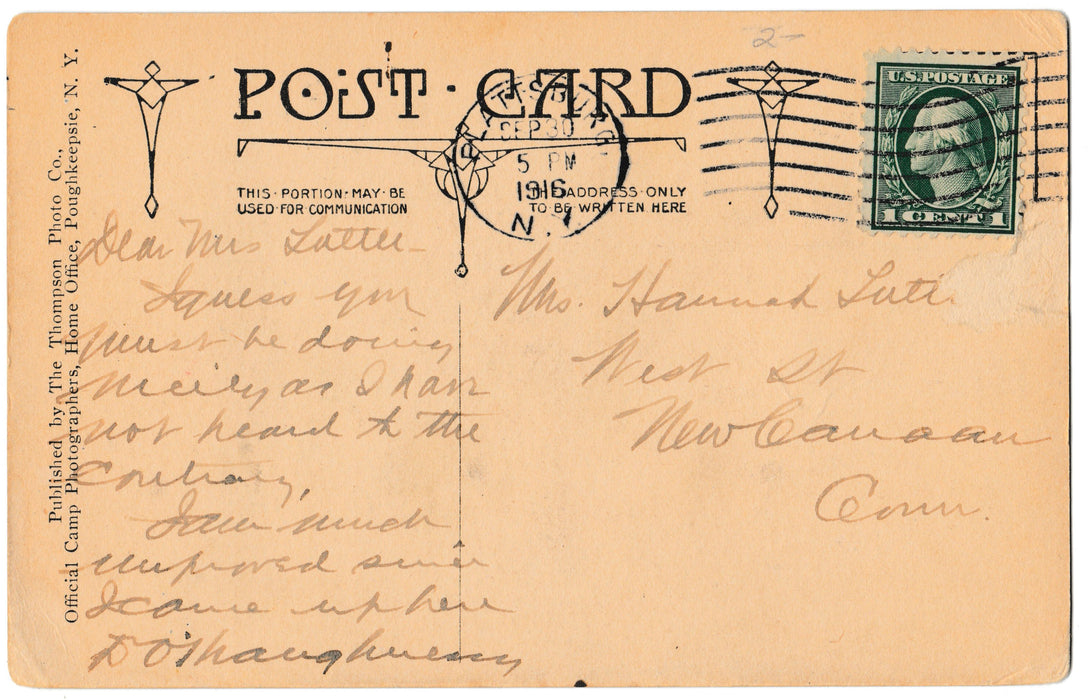 2-
POST CARD
PLATTSBURG
SEP 30
5 PM
1916
N.Y.
U.S. POSTAGE
1 CENT 1
THIS · PORTION · MAY · BE
USED · FOR COMMUNICATION
THE ADDRESS · ONLY
TO · BE · WRITTEN HERE
Published by The Thompson Photo Co.,
Official Camp Photographers, Home Office, Poughkeepsie, N. Y.
Dear Mrs
I guess you
must be doing
nicely as I have
not heard to the
contrary,
I am much
improved since
I came up here
O'Shaughnessy
Mrs. Hannah
West St
New Canaan
Conn.